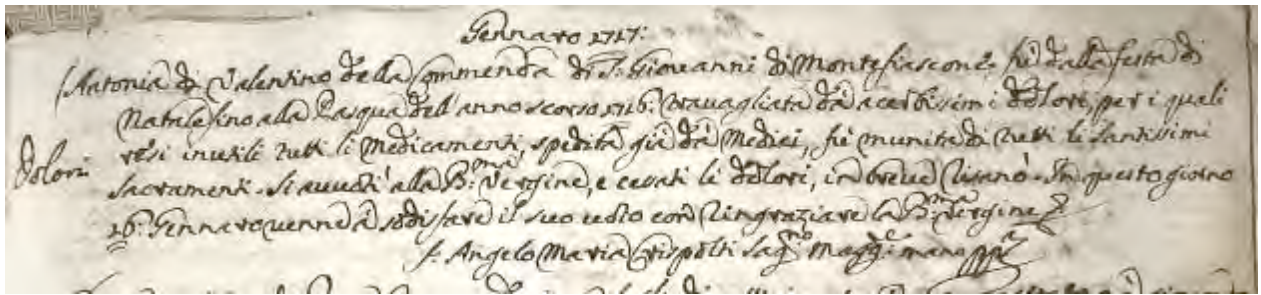 Gennaro 1717:
Antonia di Valentino della Commenda di S: Giovanni di Montefiascone, fù dalla festa di
Natale sino alla Pasqua dell'anno scorso 1716: travagliata da acerbissimi dolori, per i quali
resi inutili tutti li Medicamenti, spedita già da Medici, fù munita di tutti li Santissimi
Dolori
Sacramenti. Si avvotì alla B:ma Vergine, e cessati li dolori, in breve risanò. In questo giorno
26: Gennaro venne à sodisfare il suo voto con ringraziare la B:ma Vergine
f: Angelo Maria Crispolti Sag:no Magg:e mano ppa